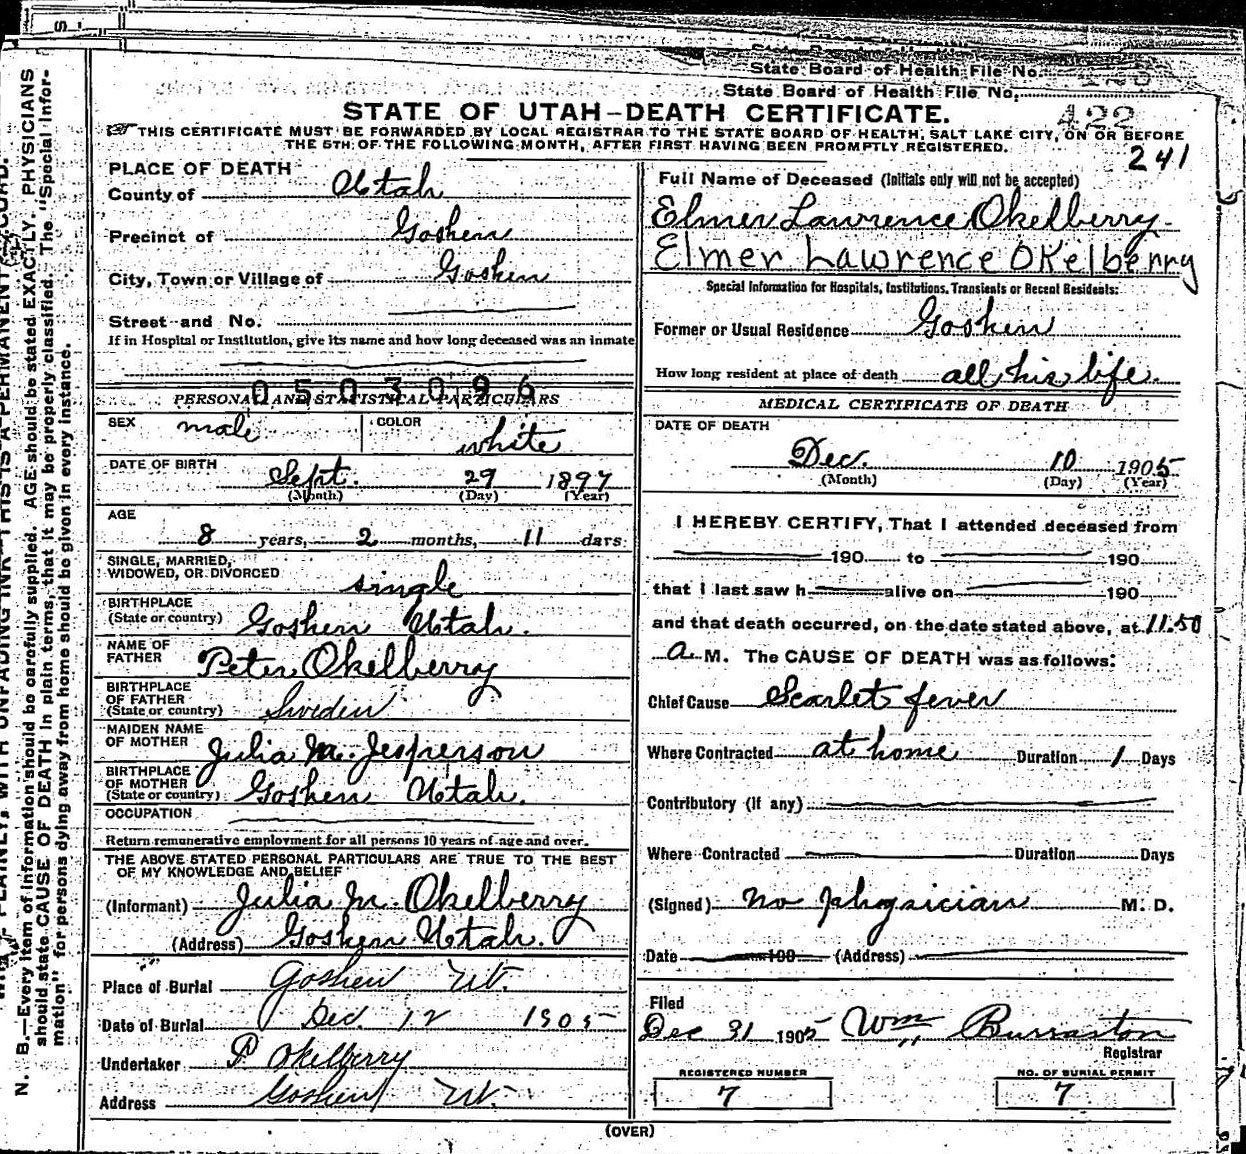 State Board of Health File No.
State Board of Health File No.
422
STATE OF UTAH-DEATH CERTIFICATE.
THIS CERTIFICATE MUST BE FORWARDED BY LOCAL REGISTRAR TO THE STATE BOARD OF HEALTH, SALT LAKE CITY, ON OR BEFORE
THE 5TH OF THE FOLLOWING MONTH, AFTER FIRST HAVING BEEN PROMPTLY REGISTERED.
241
PLACE OF DEATH
County of Utah
Precinct of Goshen
City, Town or Village of Goshen
Street and No.
If in Hospital or Institution, give its name and how long deceased was an inmate
0503096
PERSONAL AND STATISTICAL PARTICULARS
SEX male COLOR white
DATE OF BIRTH Sept. 29 1897
(Month) (Day) (Year)
AGE
8 years, 2 months, 11 days
SINGLE, MARRIED,
WIDOWED, OR DIVORCED single
BIRTHPLACE
(State or country) Goshen Utah.
NAME OF
FATHER Peter Okelberry
BIRTHPLACE
OF FATHER
(State or country) Sweden
MAIDEN NAME
OF MOTHER Julia M. Jesperson
BIRTHPLACE
OF MOTHER
(State or country) Goshen Utah.
OCCUPATION
Return remunerative employment for all persons 10 years of age and over.
THE ABOVE STATED PERSONAL PARTICULARS ARE TRUE TO THE BEST
OF MY KNOWLEDGE AND BELIEF
(Informant) Julia M. Okelberry
(Address) Goshen Utah.
Place of Burial Goshen Ut.
Date of Burial Dec. 12 1905
Undertaker P Okelberry
Address Goshen Ut.
Full Name of Deceased (Initials only will not be accepted)
Elmer Lawrence Okelberry
Elmer Lawrence OKelberry
Special Information for Hospitals, Institutions, Transients or Recent Residents:
Former or Usual Residence Goshen
How long resident at place of death all his life.
MEDICAL CERTIFICATE OF DEATH
DATE OF DEATH
Dec. 10 1905
(Month) (Day) (Year)
I HEREBY CERTIFY, That I attended deceased from
190 to 190
that I last saw h alive on 190
and that death occurred, on the date stated above, at 11.50
a M. The CAUSE OF DEATH was as follows:
Chief Cause Scarlet fever
Where Contracted at home Duration 1 Days
Contributory (if any)
Where Contracted Duration Days
(Signed) no physician M. D.
Date 190 (Address)
Filed
Dec 31 1905 Wm Burraston
Registrar
REGISTERED NUMBER
7
NO. OF BURIAL PERMIT
7
(OVER)
PLAINLY, WITH UNFADING INK—THIS IS A PERMANENT RECORD.
N. B.—Every item of information should be carefully supplied. AGE should be stated EXACTLY. PHYSICIANS
should state CAUSE OF DEATH in plain terms, that it may be properly classified. The "Special Infor-
mation" for persons dying away from home should be given in every instance.